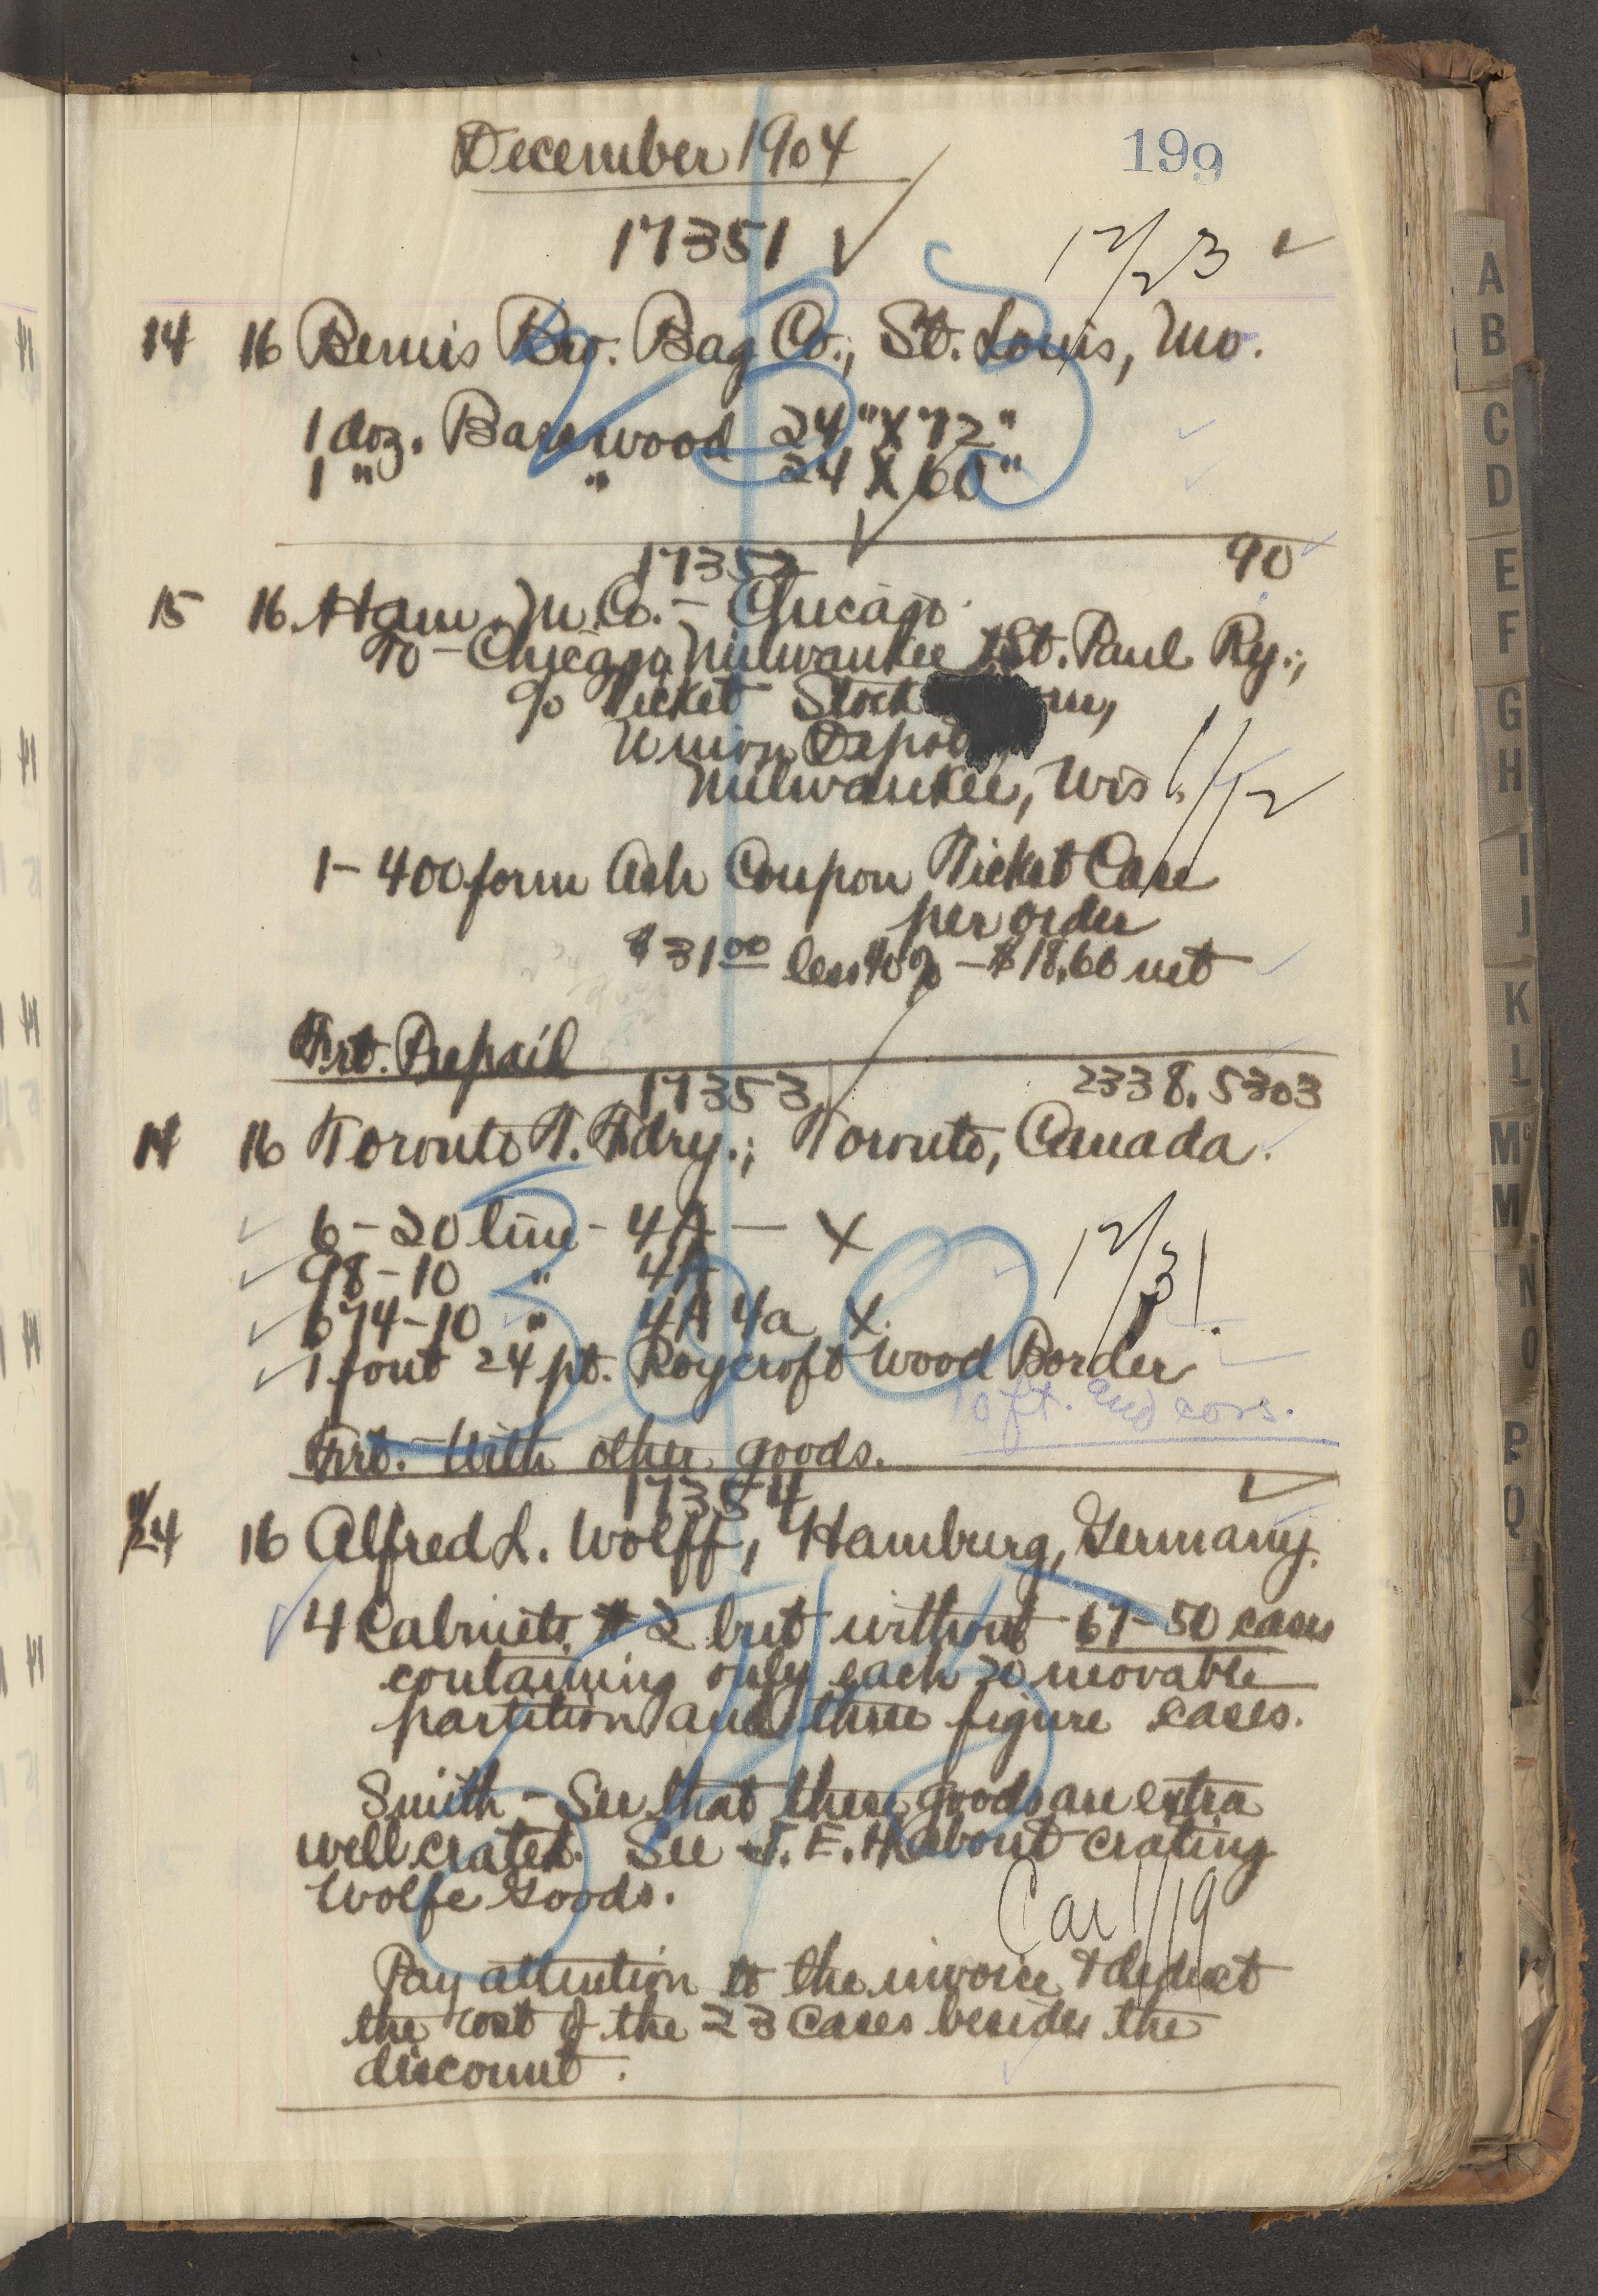 December 1904
199
17351
12/23
14 16 Bemis Bro. Bag Co.; St. Louis, Mo.
1 doz. Basswood 24" X 72"
1 " " 24 X 60"
17352
90
15 16 Ham. M. Co. - Chicago
To - Chicago, Milwaukee & St. Paul Ry.;
c/o Ticket Stock
Union Depot
Milwaukee, Wis.
1/12
1 - 400 form Ash Coupon Ticket Case
per order
$31.00 less 40% - $18.60 net
Frt. Prepaid
17353
2338. 5303
14 16 Toronto T. Fdry.; Toronto, Canada.
6 - 20 line - 4A — X
98 - 10 " 4A
674 - 10 " 4A 4a X
12/31.
1 font 24 pt. Roycroft Wood Border
10 ft. and cors.
Frt. - With other goods.
17354
24 16 Alfred L. Wolff, Hamburg, Germany.
4 Cabinets, #2 but without 67 - 50 cases
containing only each 20 movable
partition and three figure cases.
Smith - See that these goods are extra
well crated. See J. E. H. about crating
Wolfe Goods.
Car 1/19
Pay attention to the invoice & deduct
the cost of the 23 cases besides the
discount.
A
B
C
D
E
F
G
H
I
J
K
L
Mc
M
N
O
P
Q